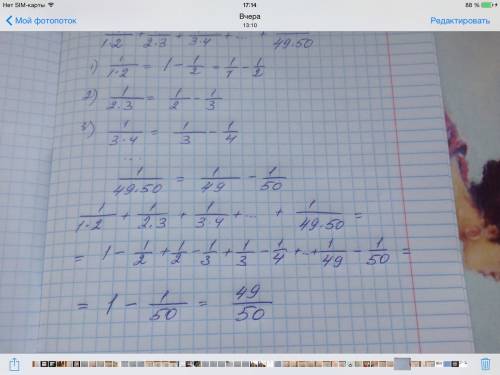 Нет SIM-карты 17:14 88 %
Мой фотопоток Вчера 13:10 Редактировать
1/(1·2) + 1/(2·3) + 1/(3·4) + ... + 1/(49·50)
1) 1/(1·2) = 1 - 1/2 = 1/1 - 1/2
2) 1/(2·3) = 1/2 - 1/3
3) 1/(3·4) = 1/3 - 1/4
...
1/(49·50) = 1/49 - 1/50
1/(1·2) + 1/(2·3) + 1/(3·4) + ... + 1/(49·50) =
= 1 - 1/2 + 1/2 - 1/3 + 1/3 - 1/4 + ... + 1/49 - 1/50 =
= 1 - 1/50 = 49/50